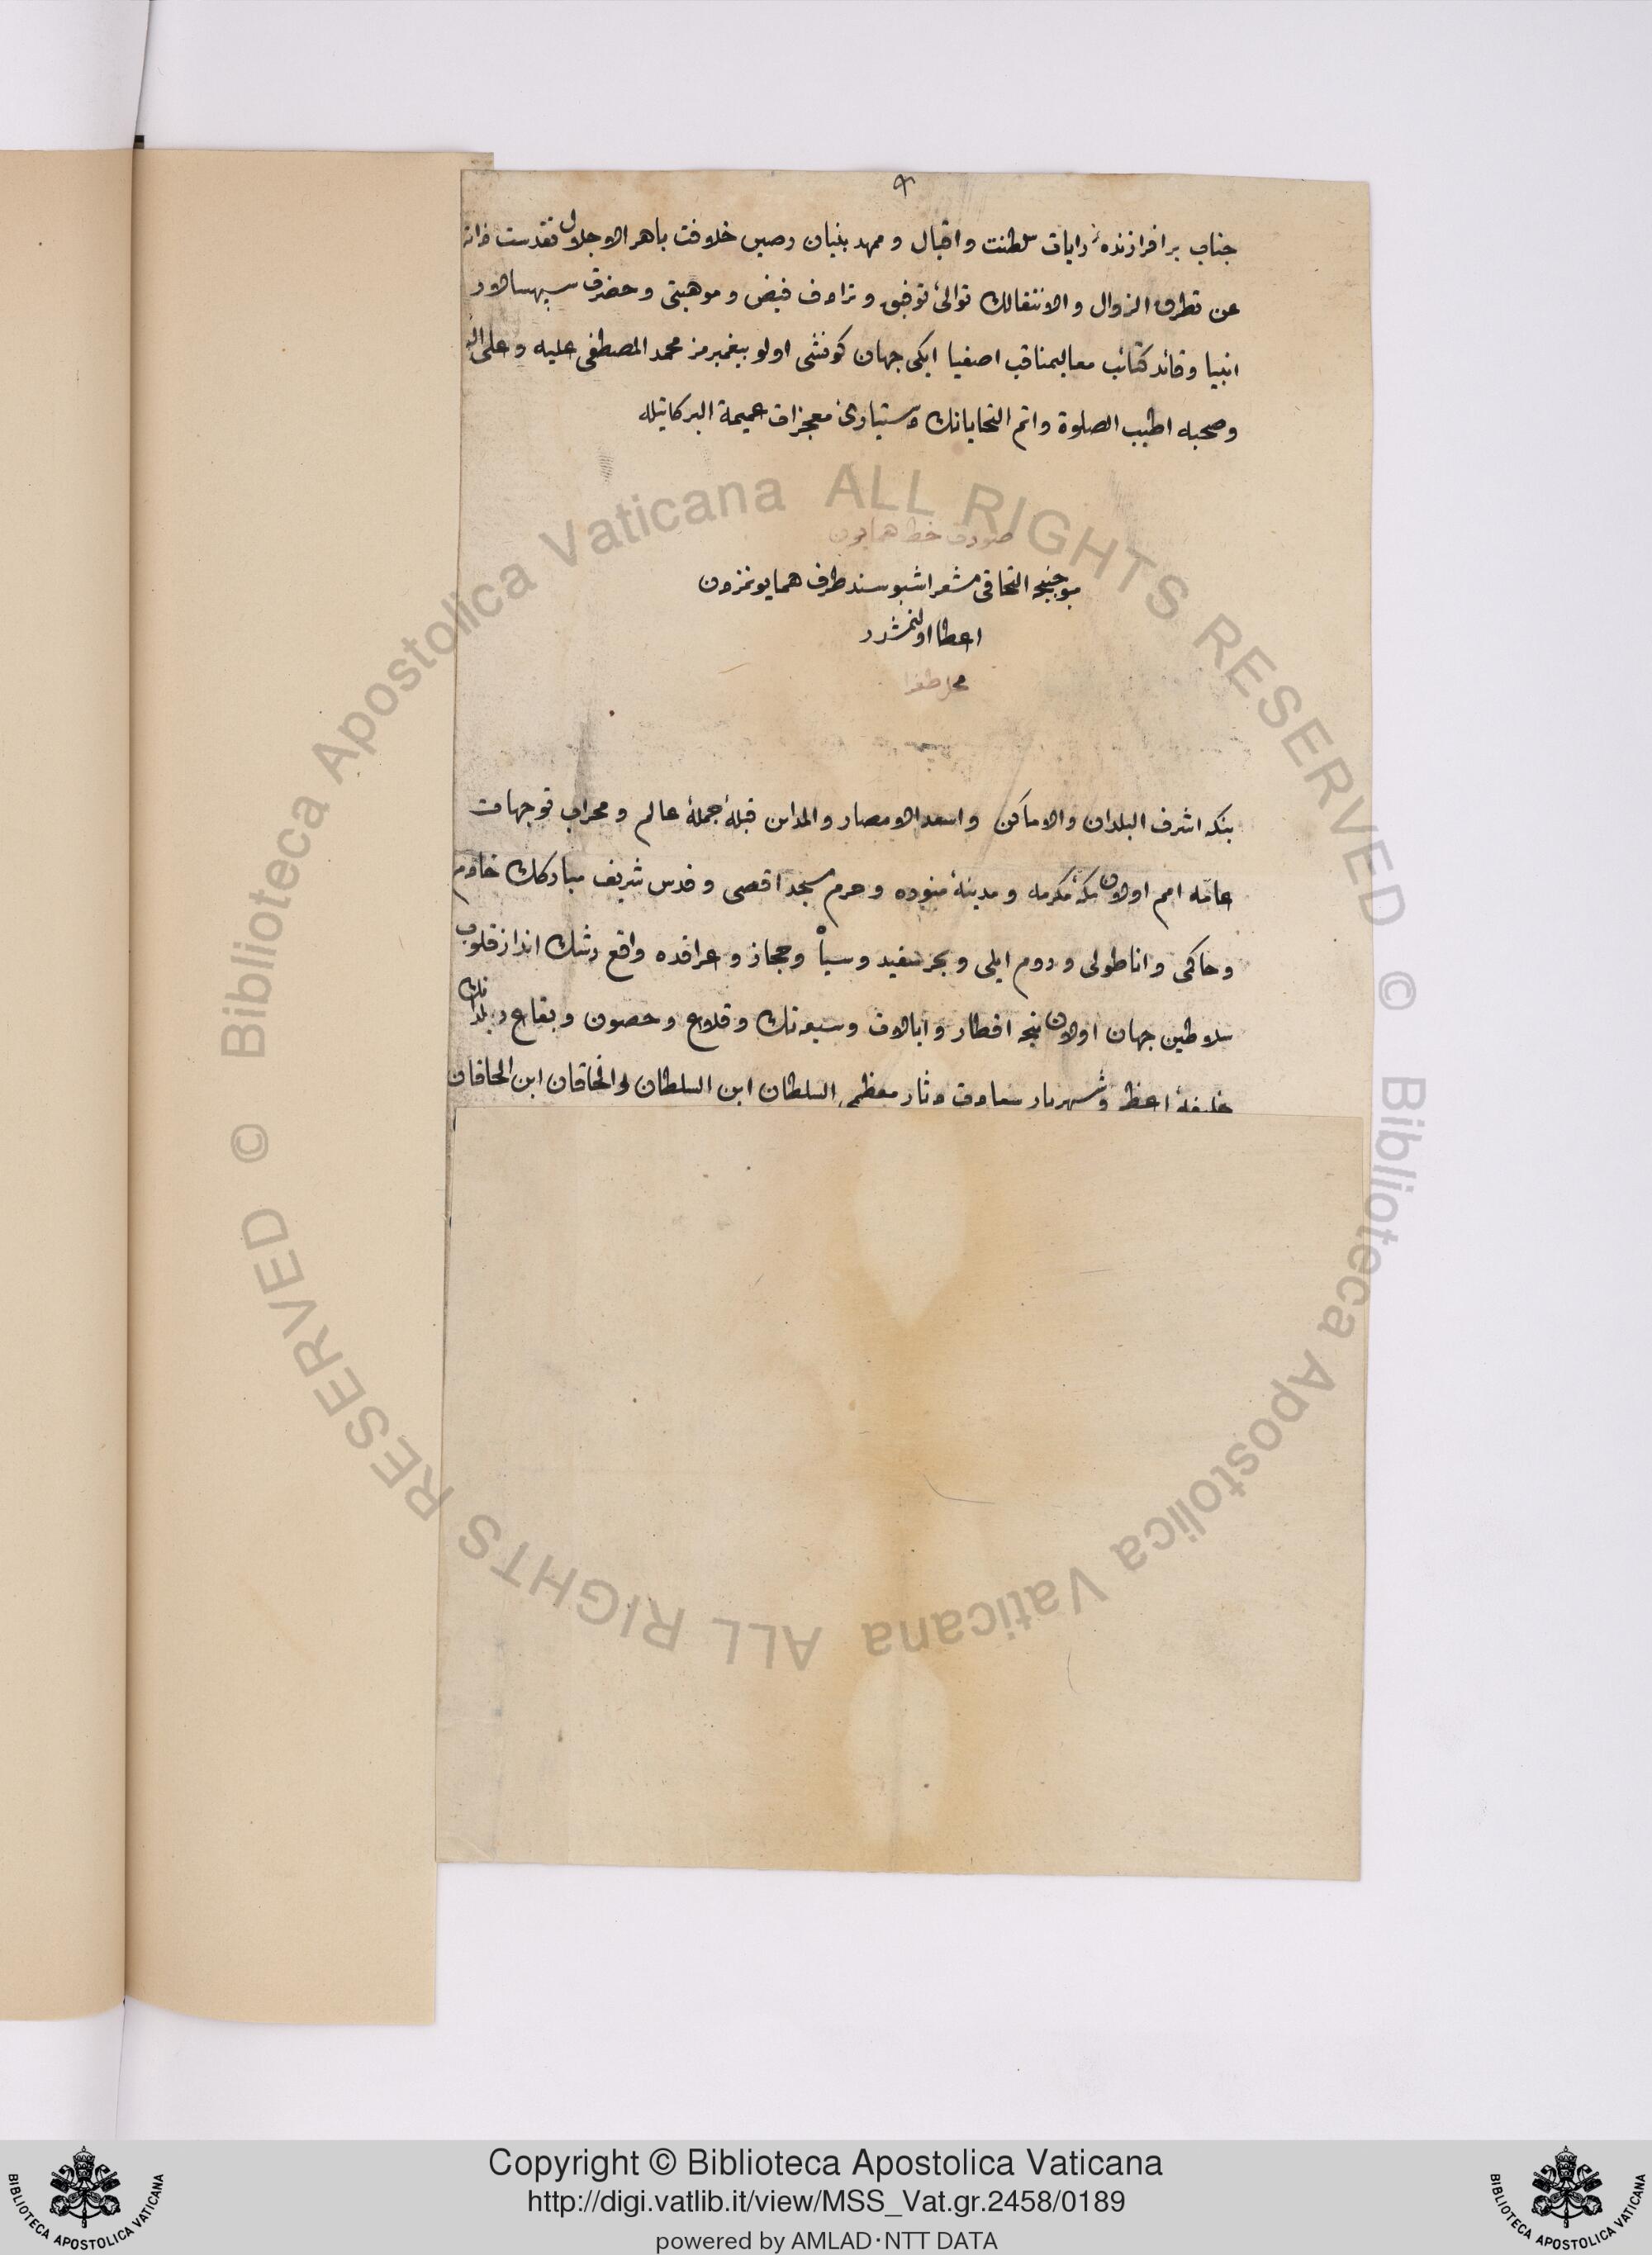 جناب بر افرازنده رایات سلطنت و اقبال و ممهد بنیان رصین خلافت باهر الاجلال تقدست ذاته
عن تطرق الزوال و الانتقالك توالئ توفیق و ترادف فیض و موهبتی و حضرت سپهسالار
انبیا و قائد كتائب معالیمناقب اصفیا ایكی جهان كونشی اولو پیغمبرمز محمد المصطفی علیه و علی اله
و صحبه اطیب الصلوة و اتم التحایانك دستیاری معجزات عمیمة البركاتیله
صورت خط همایون
موجبنجه التحاقی مشعر اشبو سند طرف همایونمزدن
اعطا اولنمشدر
محل طغرا
بنكه اشرف البلدان و الاماكن و اسعد الامصار و المداین قبلهٔ جملهٔ عالم و محراب توجهات
عامهٔ امم اولان مكهٔ مكرمه و مدینهٔ منوره و حرم مسجد اقصی و قدس شریف مباركك خادم
و حاكمی و اناطولی و روم ایلی و بحر سفید و سیاه و حجاز و عراقده واقع رشك انداز قلوب
سلاطین جهان اولان نیجه اقطار و ایالات و سیعه‌نك و قلاع و حصون و بقاع و بلدانك
خلیفهٔ اعظم و شهریار سعادت دثار معظم السلطان ابن السلطان و الخاقان ابن الخاقان
Copyright © Biblioteca Apostolica Vaticana
http://digi.vatlib.it/view/MSS_Vat.gr.2458/0189
powered by AMLAD·NTT DATA
BIBLIOTECA APOSTOLICA VATICANA
BIBLIOTECA APOSTOLICA VATICANA
© Biblioteca Apostolica Vaticana ALL RIGHTS RESERVED
© Biblioteca Apostolica Vaticana ALL RIGHTS RESERVED